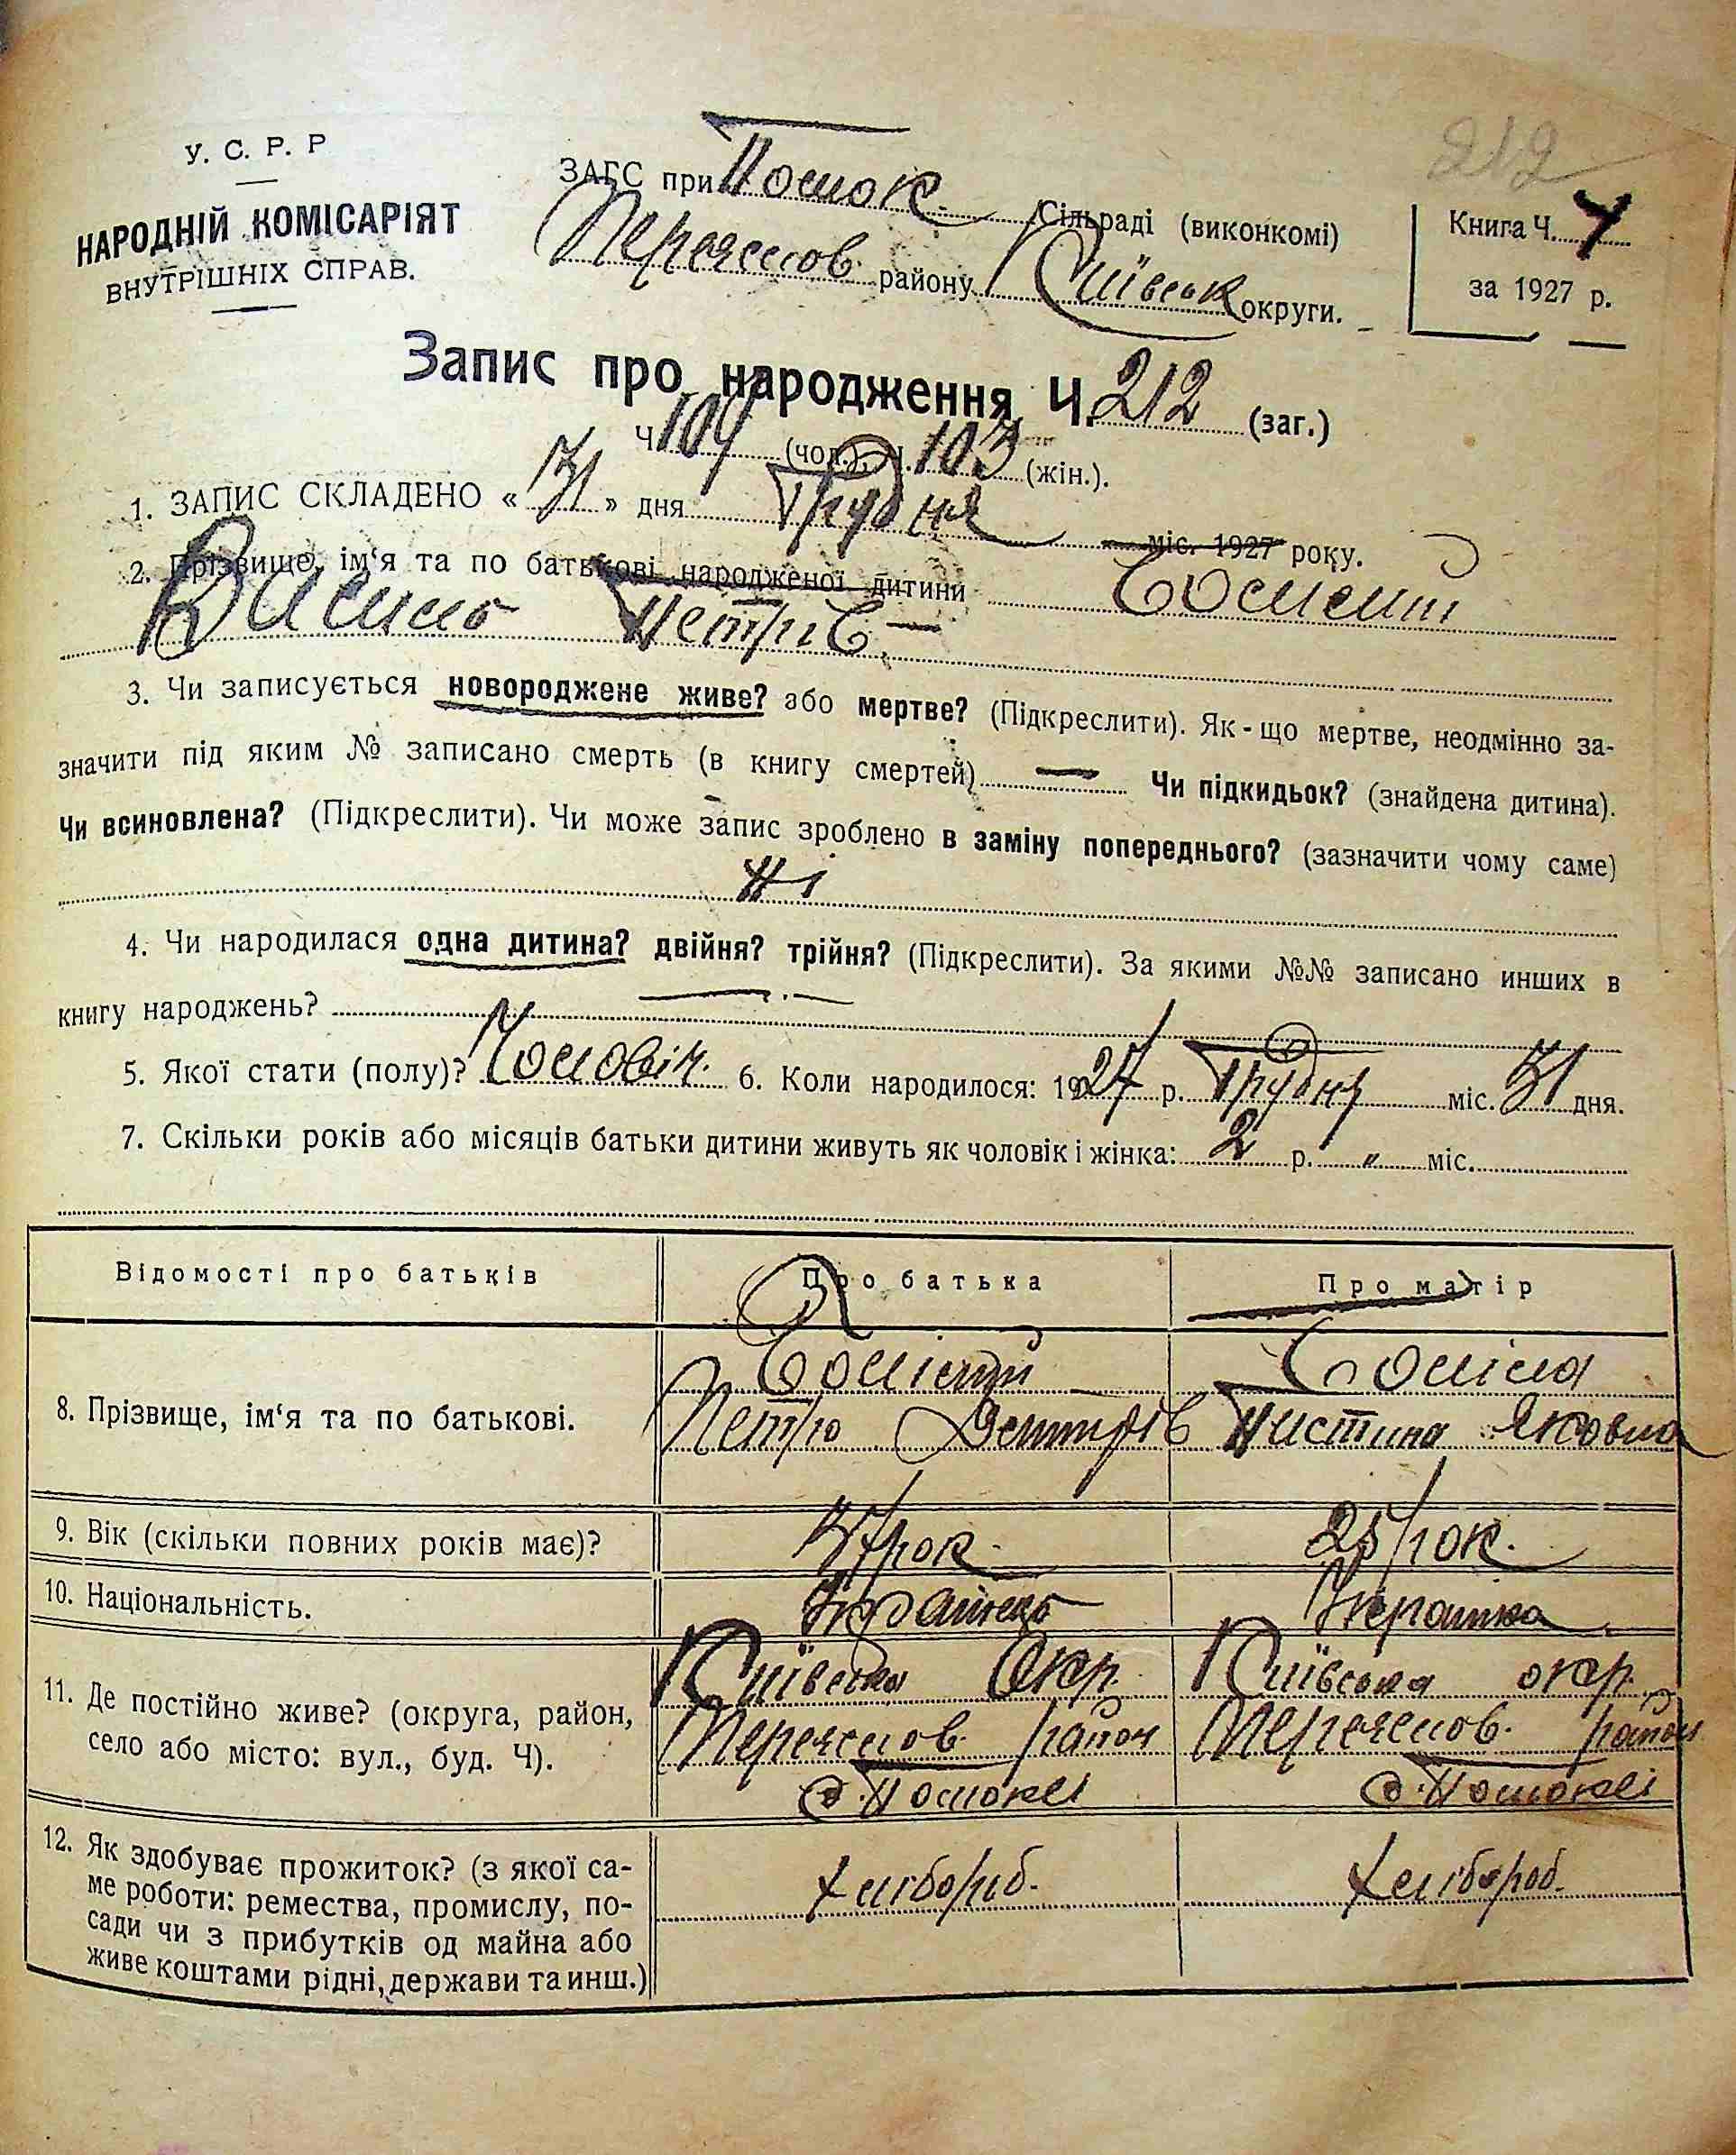 212
У. С. Р. Р
НАРОДНІЙ КОМІСАРІЯТ
ВНУТРІШНІХ СПРАВ.
ЗАГС при Помок. Сільраді (виконкомі)
Переяслов. району Київськ округи.
Книга Ч.
за 1927 р.
Запис про народження Ч. 212 (заг.)
Ч 109 (чол.), Ч. 103 (жін.).
1. ЗАПИС СКЛАДЕНО « 31 » дня Грудня міс. 1927 року.
2. Прізвище, ім‘я та по батькові народженої дитини
Василь Петрів
3. Чи записується новороджене живе? або мертве? (Підкреслити). Як-що мертве, неодмінно за-
значити під яким № записано смерть (в книгу смертей) — Чи підкидьок? (знайдена дитина).
Чи всиновлена? (Підкреслити). Чи може запис зроблено в заміну попереднього? (зазначити чому саме)
Ні
4. Чи народилася одна дитина? двійня? трійня? (Підкреслити). За якими №№ записано инших в
книгу народжень?
5. Якої стати (полу)? Чоловіч. 6. Коли народилося: 1927 р. Грудня міс. 31 дня.
7. Скільки років або місяців батьки дитини живуть як чоловік і жінка: 2 р. „ міс.
Відомості про батьків
Про батька
Про матір
8. Прізвище, ім‘я та по батькові.
Петро Дмитрів
Христина Яковла
9. Вік (скільки повних років має)?
рок.
25 рок.
10. Національність.
Українка
11. Де постійно живе? (округа, район,
село або місто: вул., буд. Ч).
Київська Окр.
Переяслов. район
Київська окр.
Переяслов. район
12. Як здобуває прожиток? (з якої са-
ме роботи: ремества, промислу, по-
сади чи з прибутків од майна або
живе коштами рідні, держави та инш.)
хлібороб.
хлібороб.